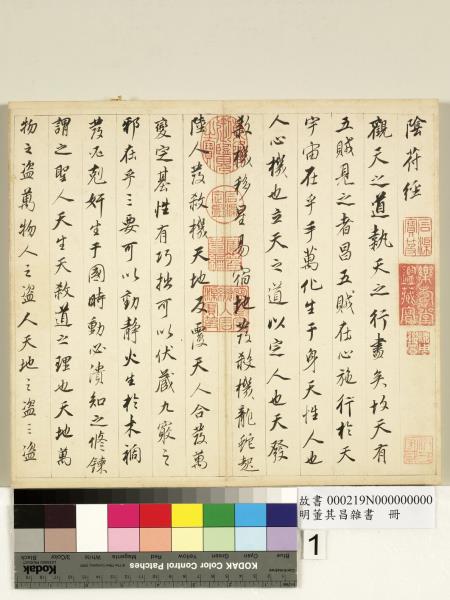 陰符經
觀天之道執天之行盡矣故天有
五賊見之者昌五賊在心施行於天
宇宙在乎手萬化生于身天性人也
人心機也立天之道以定人也天發
殺機移星易宿地發殺機龍蛇起
陸人發殺機天地反覆天人合發萬
變定基性有巧拙可以伏藏九竅之
邪在乎三要可以動靜火生於木禍
發必剋奸生于國時動必潰知之修鍊
謂之聖人天生天殺道之理也天地萬
物之盜萬物人之盜人天地之盜三盜
故書 000219N000000000
明董其昌雜書 冊
1
Blue Cyan Green Yellow Red Magenta White 3/Color Black
KODAK Color Control Patches
Kodak